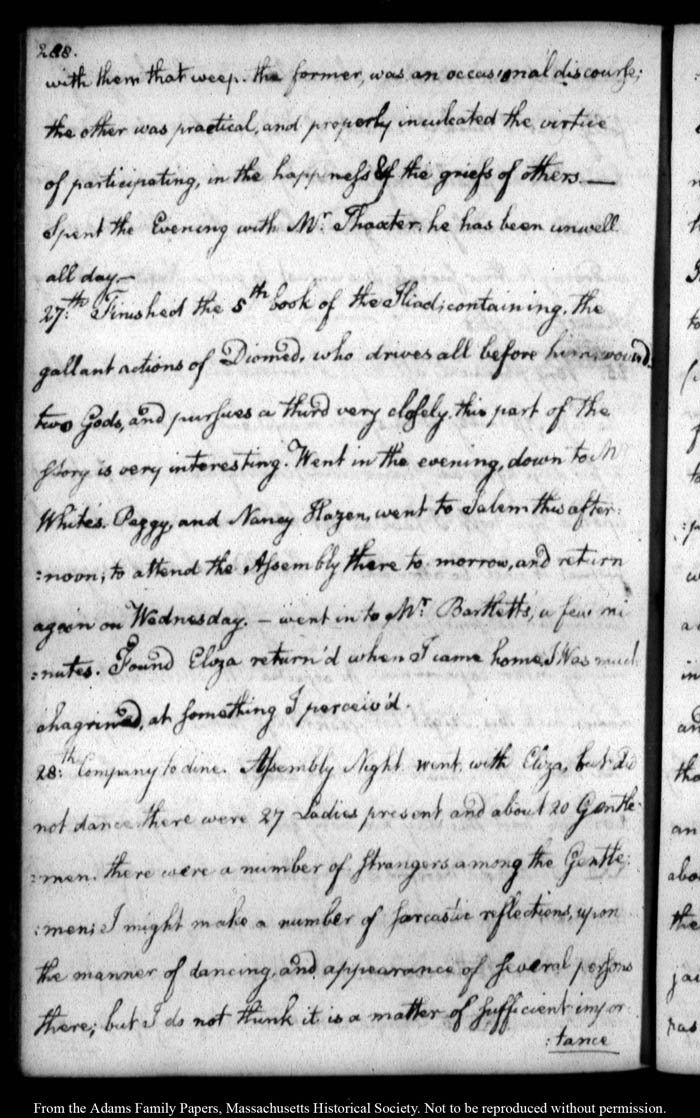 288.
with them that weep. the former, was an occasional discourse;
the other was practical, and properly inculcated the virtue
of participating, in the happiness & the griefs of others. —
Spent the Evening with Mr. Thaxter. he has been unwell
all day —
27th: Finished the 5th book of the Iliad; containing, the
gallant actions of Diomed, who drives all before him, wounds
two Gods, and pursues a third very closely, this part of the
Story is very interesting. Went in the evening, down to Mr
White's. Peggy, and Nancy Hazen, went to Salem this after:
:noon; to attend the Assembly there to morrow, and return
again on Wednesday. — went in to Mr. Bartlett's, a few mi
:nutes. Found Eliza return'd when I came home, I was much
chagrined, at something I perceiv'd.
28:th Company to dine. Assembly Night. went with Eliza, but did
not dance. there were 27 Ladies present and about 20 Gentle:
:men. there were a number of Strangers among the Gentle:
:men; I might make a number of sarcastic reflections, upon
the manner of dancing, and appearance of several persons
there; but I do not think it is a matter of sufficient impor
:tance
From the Adams Family Papers, Massachusetts Historical Society. Not to be reproduced without permission.